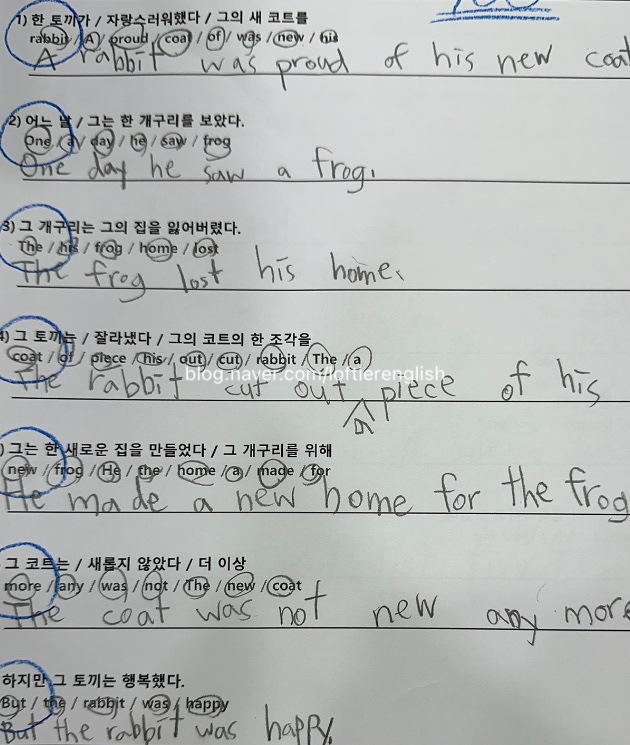 1) 한 토끼가 / 자랑스러워했다 / 그의 새 코트를
rabbit / A / proud / coat / of / was / new / his
A rabbit was proud of his new coat
2) 어느 날 / 그는 한 개구리를 보았다.
One / a / day / he / saw / frog
One day he saw a frog.
3) 그 개구리는 그의 집을 잃어버렸다.
The / his / frog / home / lost
The frog lost his home.
4) 그 토끼는 / 잘라냈다 / 그의 코트의 한 조각을
coat / of / piece / his / out / cut / rabbit / The / a
The rabbit cut out a piece of his
blog.naver.com/loftierenglish
) 그는 한 새로운 집을 만들었다 / 그 개구리를 위해
new / frog / He / the / home / a / made / for
He made a new home for the frog
그 코트는 / 새롭지 않았다 / 더 이상
more / any / was / not / The / new / coat
The coat was not new any more
하지만 그 토끼는 행복했다.
But / the / rabbit / was / happy
But the rabbit was happy.